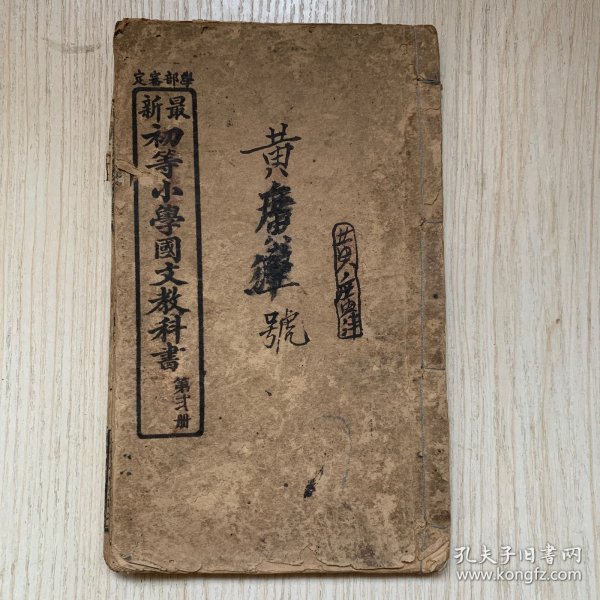 學部審定
最新
初等小學國文教科書
第弍册
黃廣肇號
黃廣肇
孔夫子旧书网
www.kongfz.com